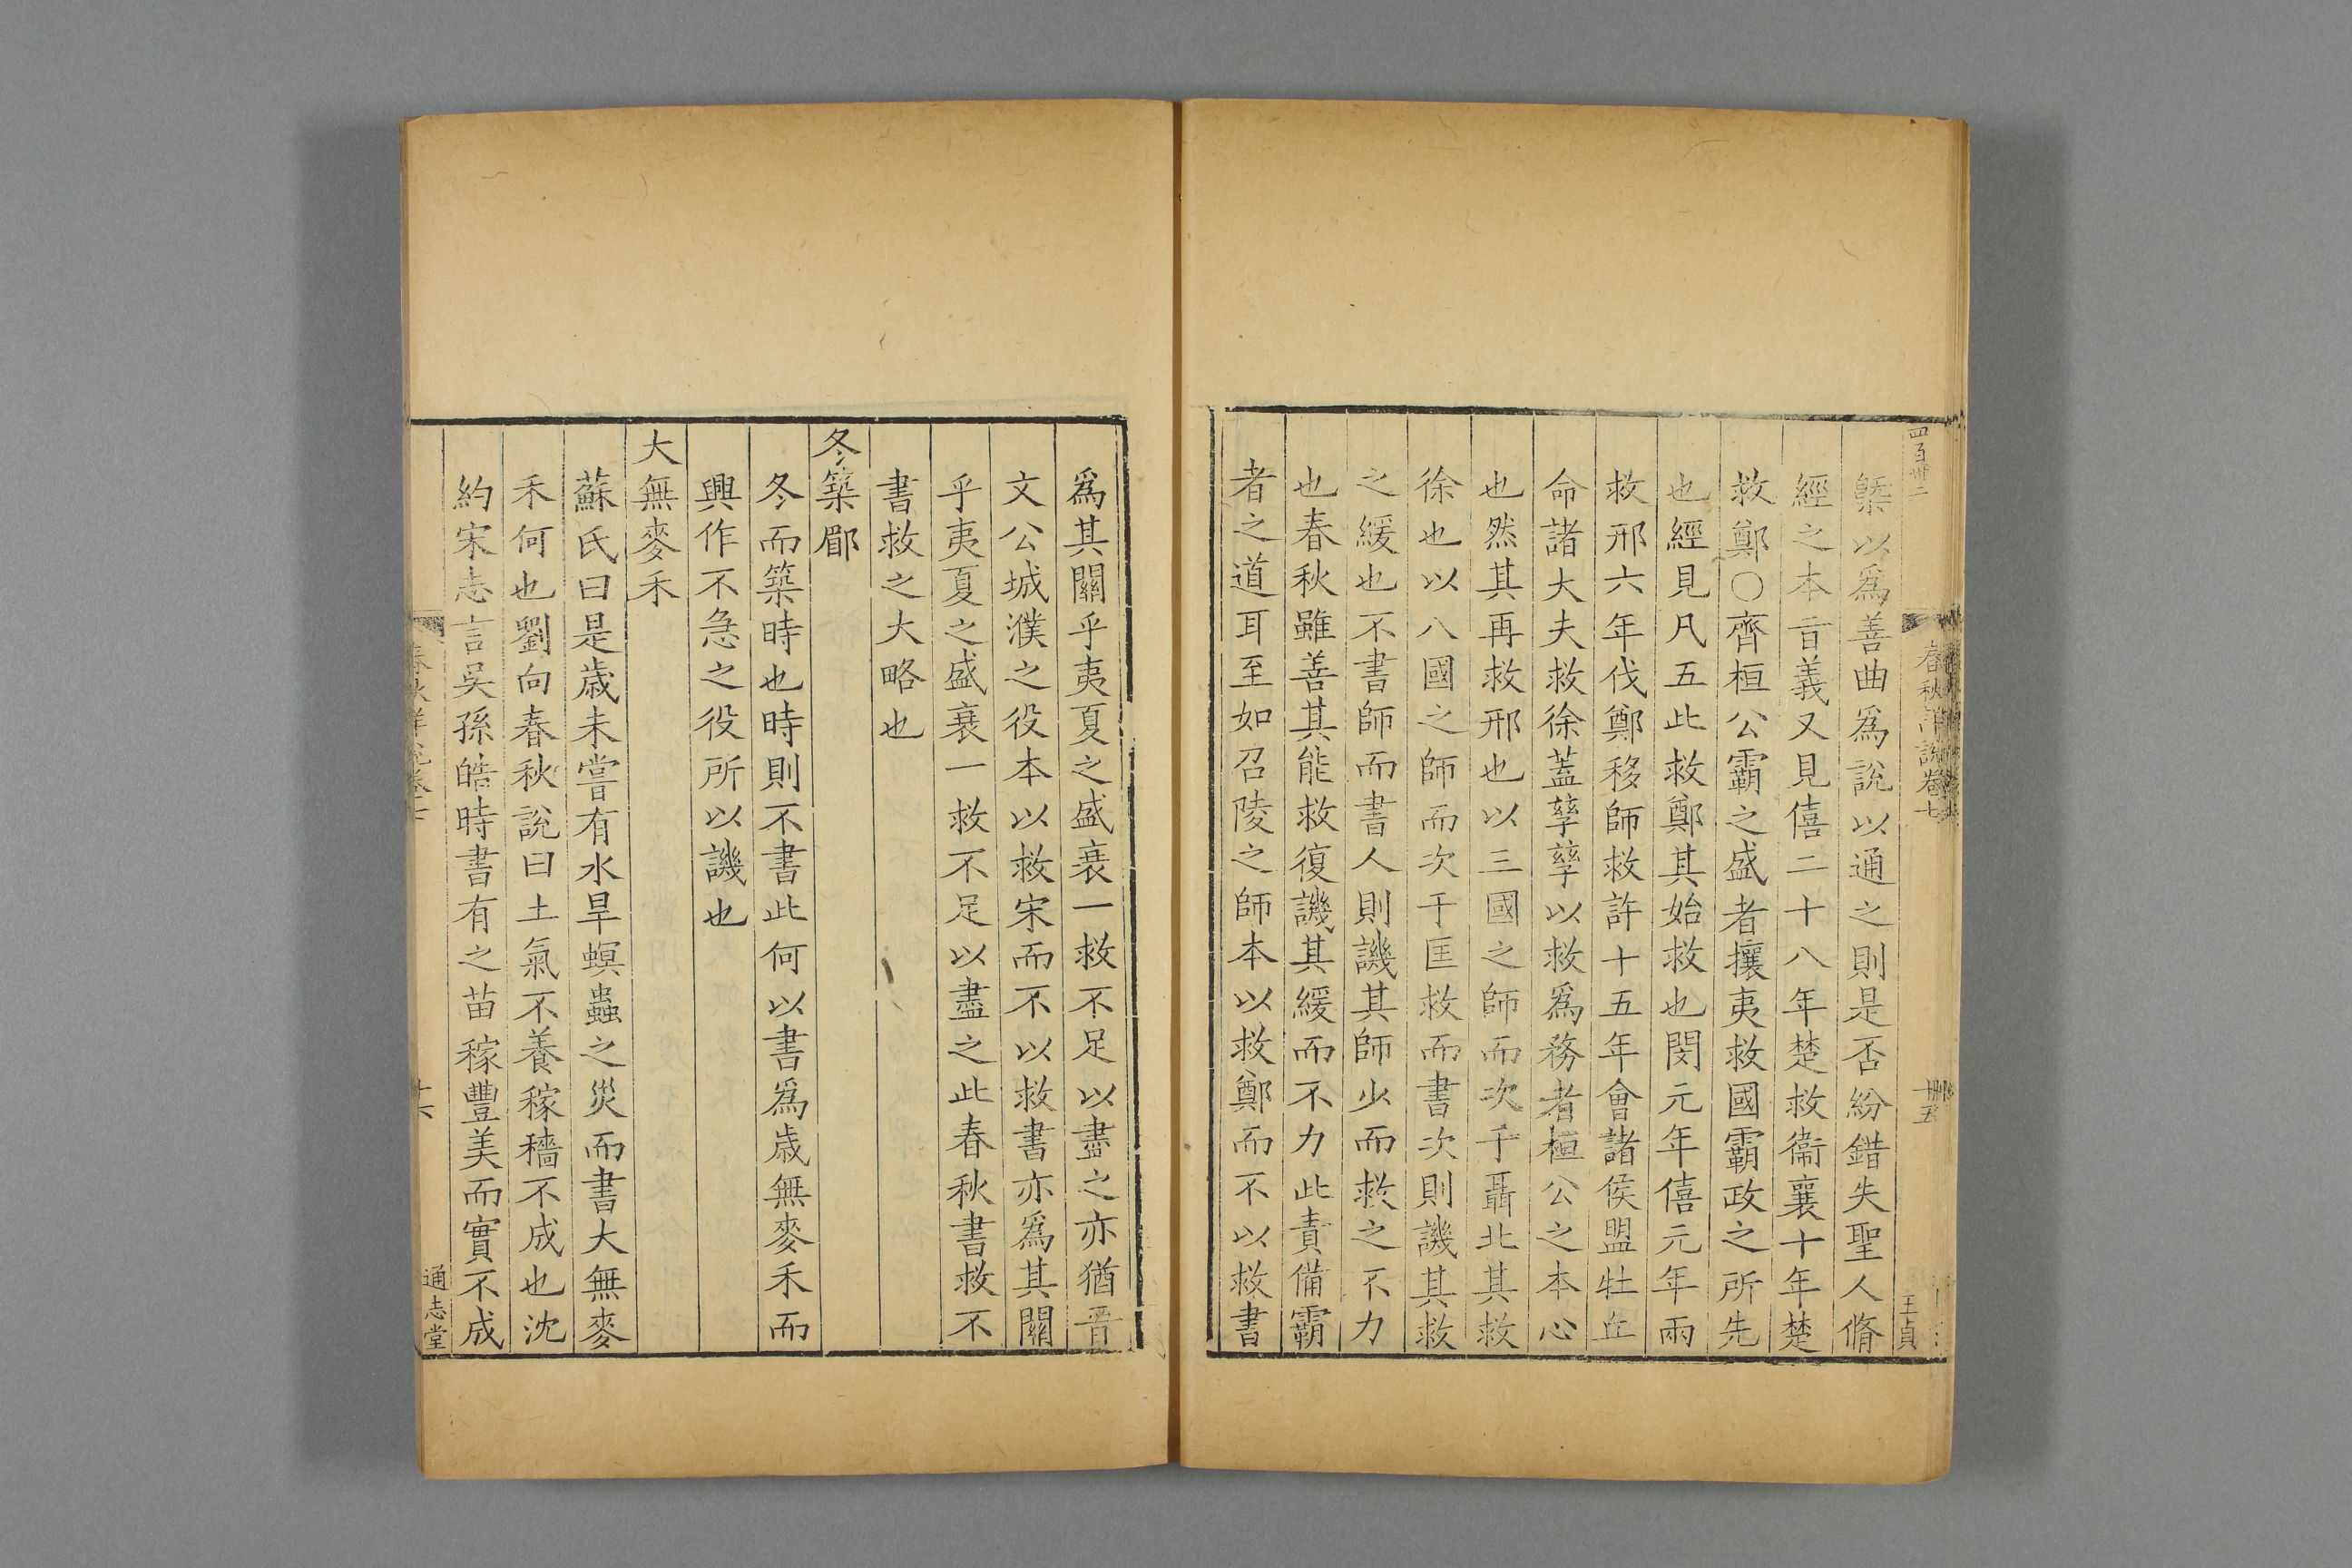 四百卅二
春秋詳說卷七
王貞
槩以爲善曲爲說以通之則是否紛錯失聖人脩
經之本旨義又見僖二十八年楚救衞襄十年楚
救鄭〇齊桓公霸之盛者攘夷救國霸政之所先
也經見凡五此救鄭其始救也閔元年僖元年兩
救邢六年伐鄭移師救許十五年會諸侯盟牡丘
命諸大夫救徐蓋孳孳以救爲務者桓公之本心
也然其再救邢也以三國之師而次于聶北其救
徐也以八國之師而次于匡救而書次則譏其救
之緩也不書師而書人則譏其師少而救之不力
也春秋雖善其能救復譏其緩而不力此責備霸
者之道耳至如召陵之師本以救鄭而不以救書
爲其關乎夷夏之盛衰一救不足以盡之亦猶晉
文公城濮之役本以救宋而不以救書亦爲其關
乎夷夏之盛衰一救不足以盡之此春秋書救不
書救之大略也
冬築郿
冬而築時也時則不書此何以書爲歲無麥禾而
興作不急之役所以譏也
大無麥禾
蘇氏曰是歲未嘗有水旱螟蟲之災而書大無麥
禾何也劉向春秋說曰土氣不養稼穡不成也沈
約宋志言吳孫皓時書有之苗稼豐美而實不成
通志堂